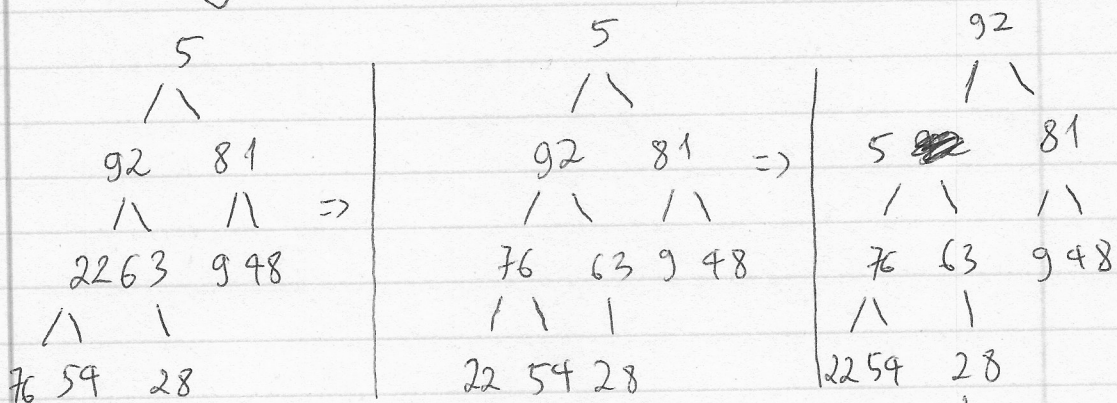 5
92 81 =>
22 63 9 48
76 54 28
5
92 81 =>
76 63 9 48
22 54 28
92
5 81
76 63 9 48
22 54 28